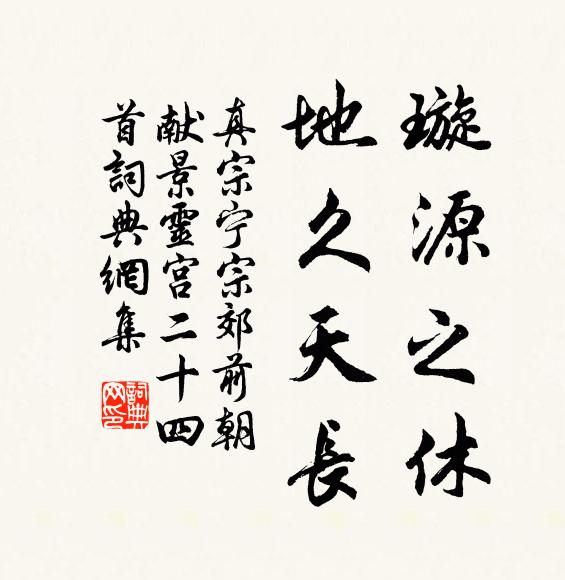 璇源之休
地久天長
真宗宁宗郊前朝
献景靈宫二十四
首詞典網集
詞典网印